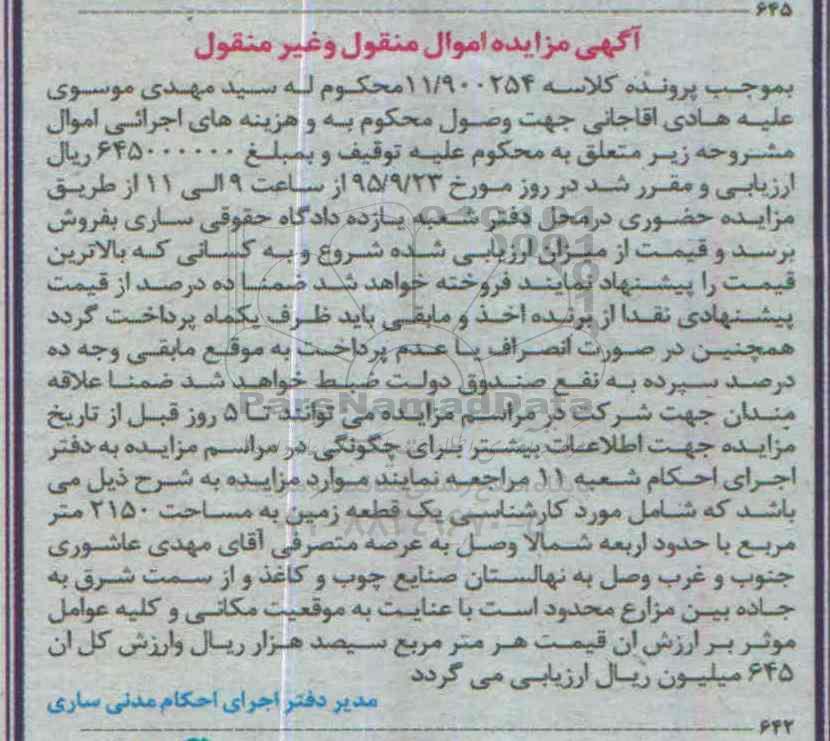 ۶۴۵
آگهی مزایده اموال منقول وغیر منقول
بموجب پرونده کلاسه ۱۱/۹۰۰۲۵۴محکوم له سید مهدی موسوی
علیه هادی اقاجانی جهت وصول محکوم به و هزینه های اجرائی اموال
مشروحه زیر متعلق به محکوم علیه توقیف و بمبلغ ۶۴۵۰۰۰۰۰۰ ریال
ارزیابی و مقرر شد در روز مورخ ۹۵/۹/۲۳ از ساعت ۹ الی ۱۱ از طریق
مزایده حضوری درمحل دفتر شعبه یازده دادگاه حقوقی ساری بفروش
برسد و قیمت از میزان ارزیابی شده شروع و به کسانی که بالاترین
قیمت را پیشنهاد نمایند فروخته خواهد شد ضمنا ده درصد از قیمت
پیشنهادی نقدا از برنده اخذ و مابقی باید ظرف یکماه پرداخت گردد
همچنین در صورت انصراف یا عدم پرداخت به موقع مابقی وجه ده
درصد سپرده به نفع صندوق دولت ضبط خواهد شد ضمنا علاقه
مندان جهت شرکت در مراسم مزایده می توانند تا ۵ روز قبل از تاریخ
مزایده جهت اطلاعات بیشتر برای چگونگی در مراسم مزایده به دفتر
اجرای احکام شعبه ۱۱ مراجعه نمایند موارد مزایده به شرح ذیل می
باشد که شامل مورد کارشناسی یک قطعه زمین به مساحت ۲۱۵۰ متر
مربع با حدود اربعه شمالا وصل به عرصه متصرفی آقای مهدی عاشوری
جنوب و غرب وصل به نهالستان صنایع چوب و کاغذ و از سمت شرق به
جاده بین مزارع محدود است با عنایت به موقعیت مکانی و کلیه عوامل
موثر بر ارزش ان قیمت هر متر مربع سیصد هزار ریال وارزش کل ان
۶۴۵ میلیون ریال ارزیابی می گردد
مدیر دفتر اجرای احکام مدنی ساری
۶۴۲
ParsNamadData